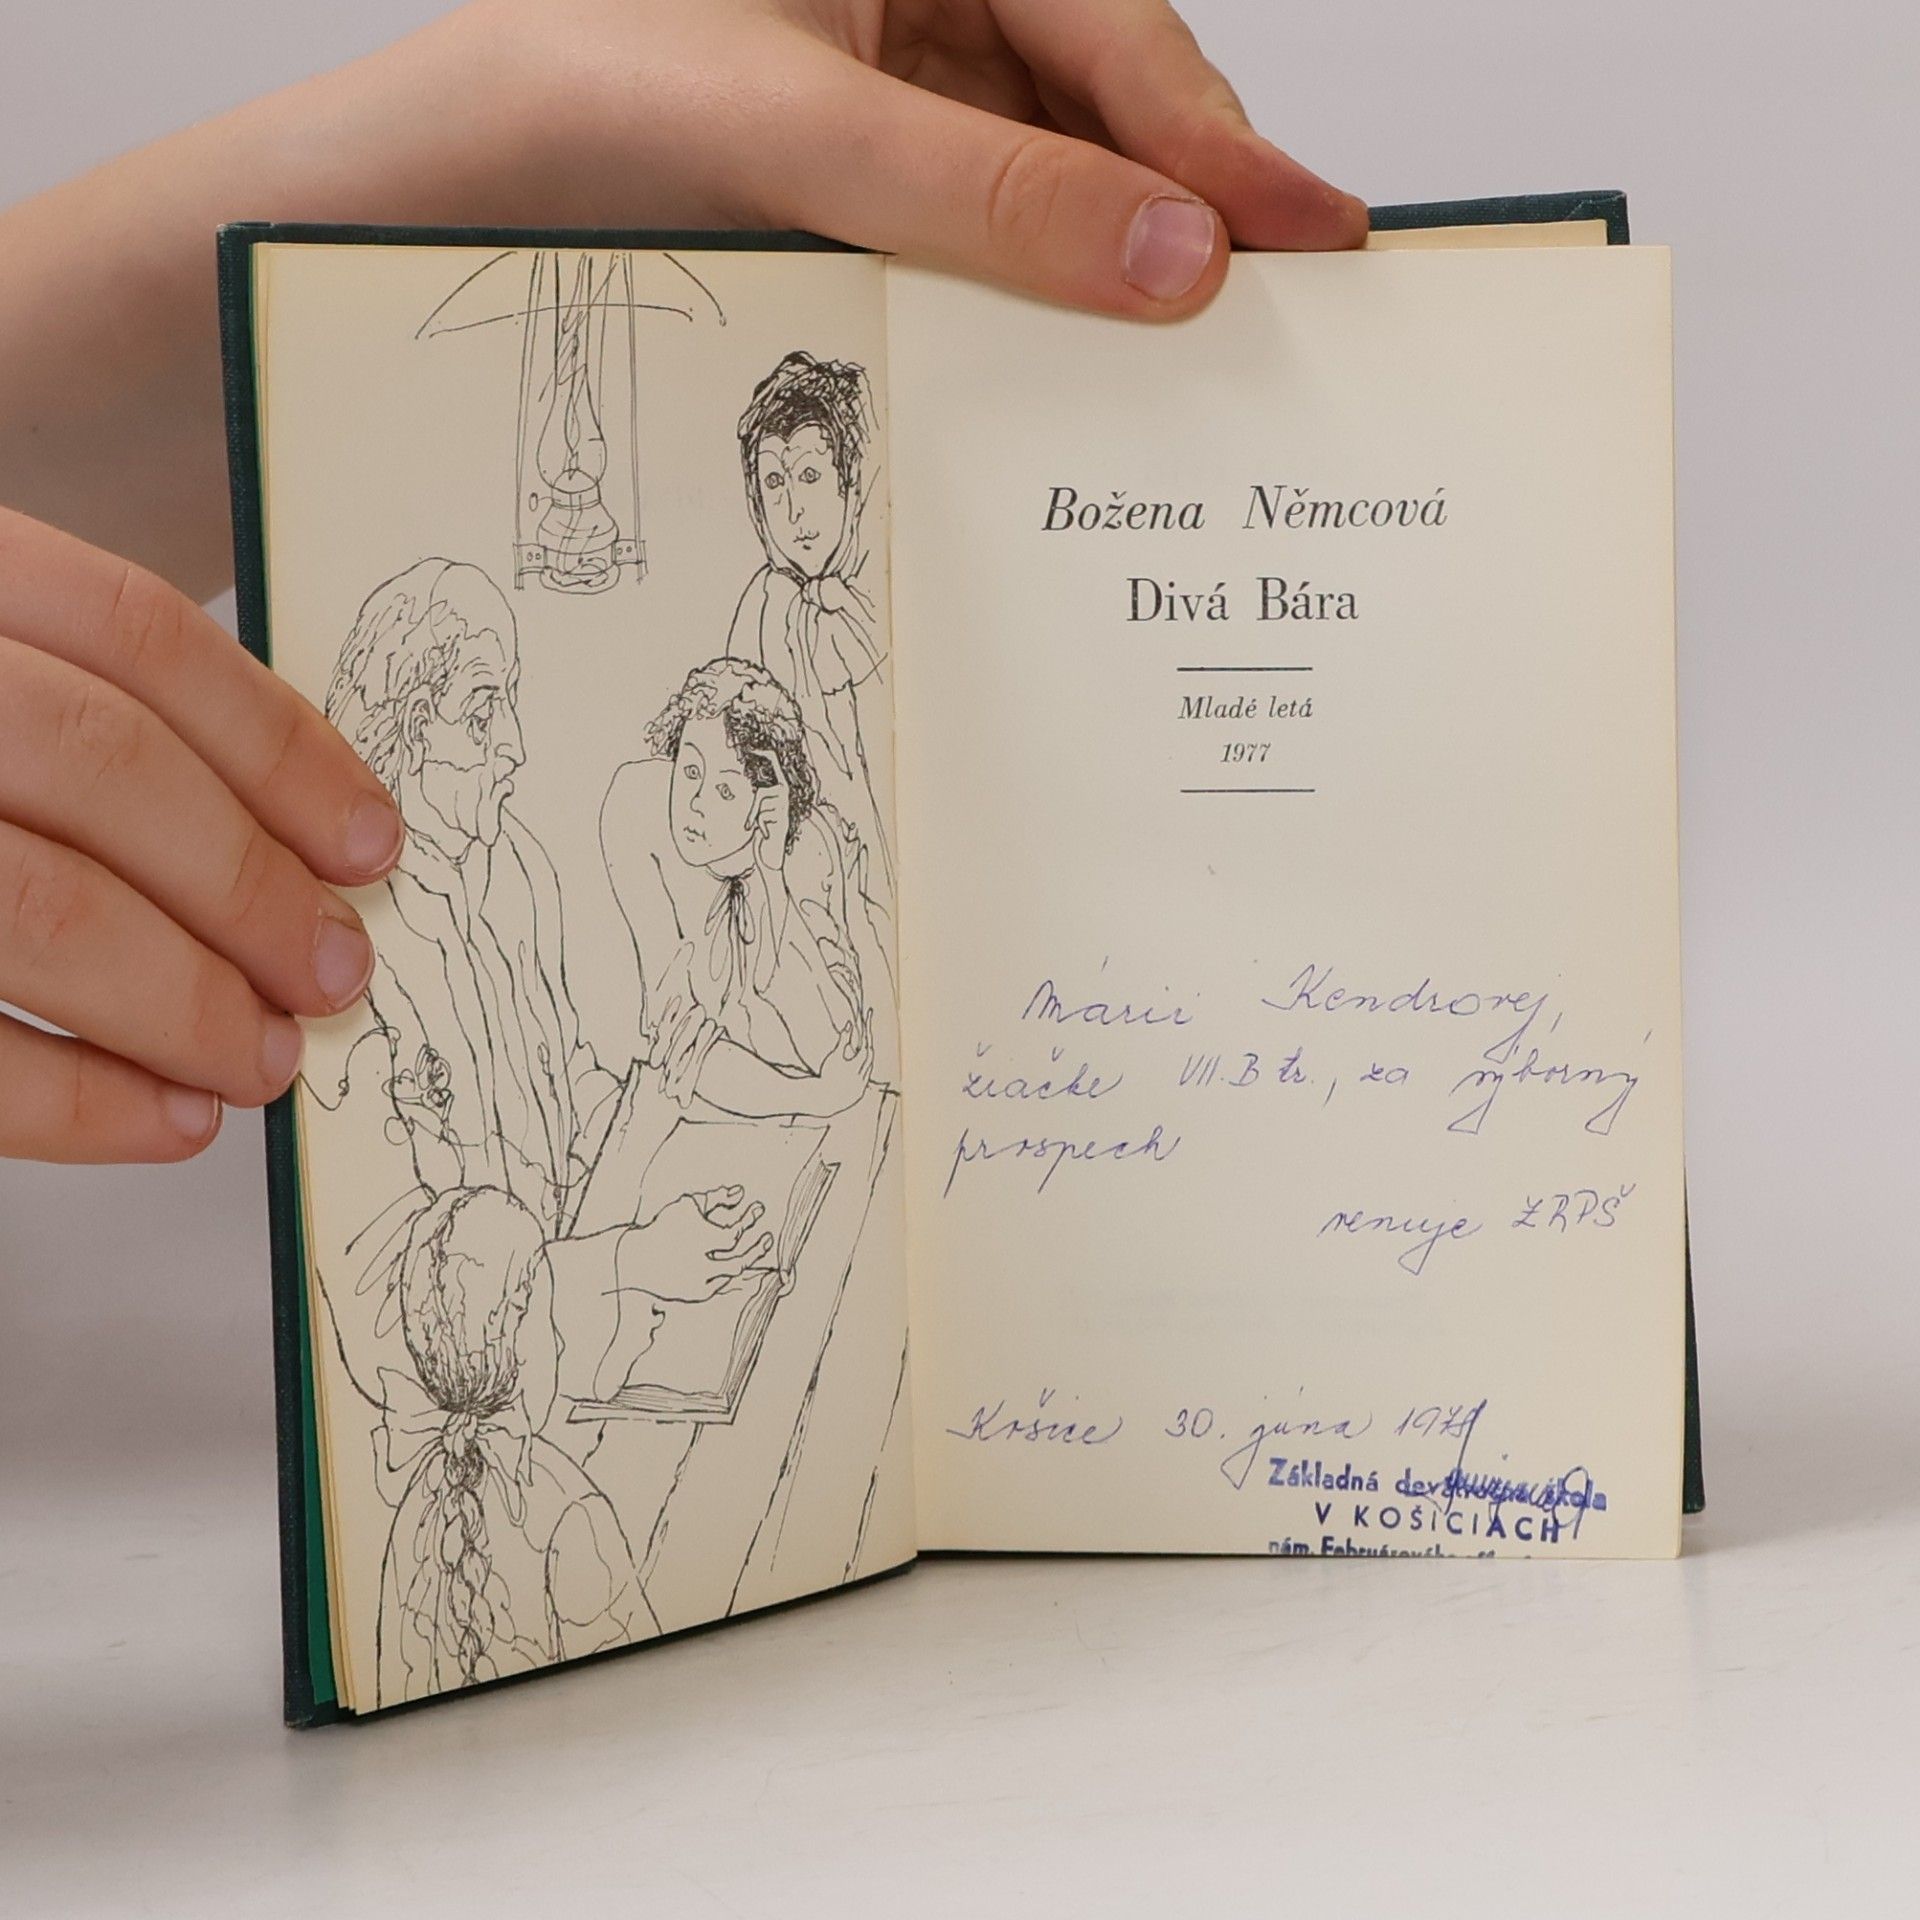 Božena Němcová
Divá Bára
Mladé letá
1977
Márii Kendrovej,
žiačke VII. B tr., za výborný
prospech
venuje ZRPŠ
Košice 30. júna
Základná deväťročná škola
V KOŠICIACH
nám. Februárového